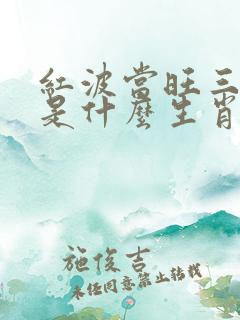 紅波當旺三
是什麼生肖
施俊吉
未经同意禁止转载